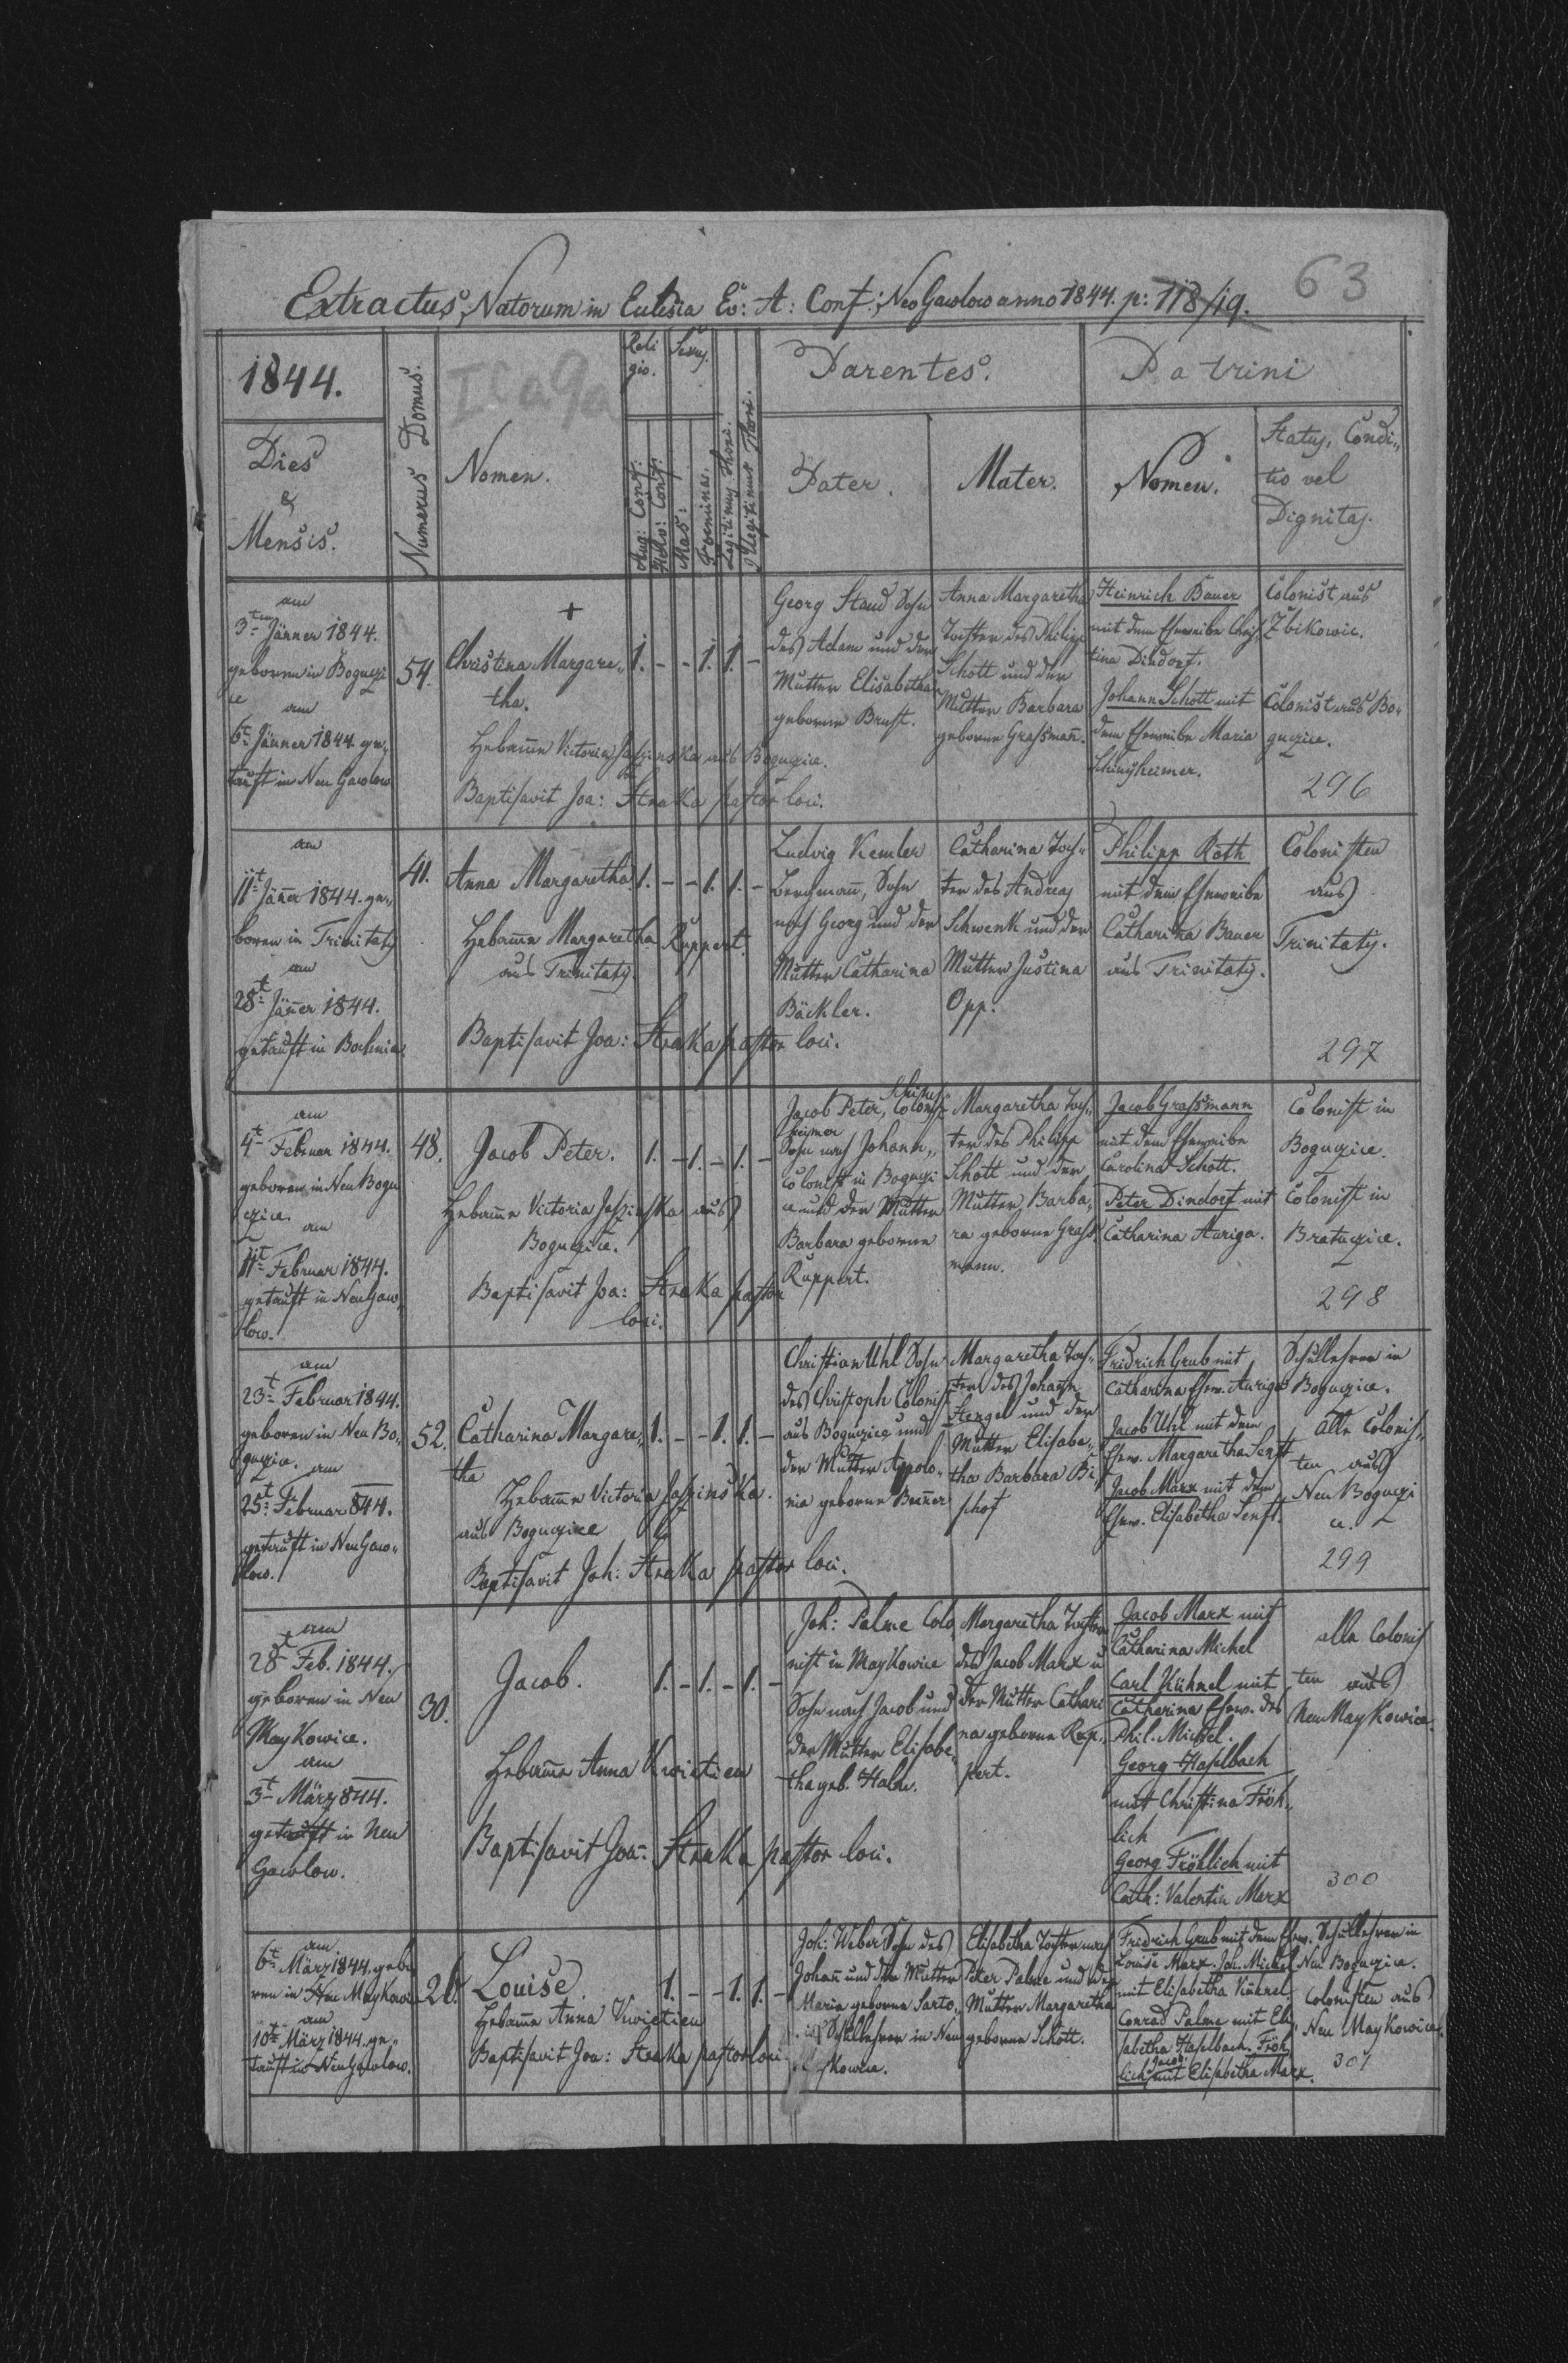 63
Extractus Natorum in Eclesia Ev: A: Conf: Neo Gawlow anno 1844. p: 118/19.
1844.
Dies
&
Mensis.
Numerus Domus.
Nomen.
Religio.
Aug: Conf:
Helv: Conf:
Sexus.
Mas:
Foemina.
Legitimus Thori.
Illegitimus Thori.
Parentes.
Pater.
Mater.
Patrini
Nomen.
Status, Condi„
tio vel
Dignitas.
am
3ten Jänner 1844.
geboren in Boguczi
ce
am
6t Jänner 1844. ge„
tauft in Neu Gawlow
54.
+
Christina Margare„
tha.
1. - - 1. 1. -
Hebamme Victoria Jaszinska aus Boguczice.
Baptisavit Joa: Straka pastor loci.
Georg Staud Sohn
des Adam und der
Mutter Elisabetha
geborene Brust.
Anna Margaretha
Tochter des Philipp
Schott und der
Mutter Barbara
geborne Graßmann.
Heinrich Bauer
mit dem Eheweibe Chris
tina Dindorf.
Johann Schott mit
dem Eheweibe Maria
Colonist aus
Zbikowic.
Colonist aus Bo„
guczice.
296
am
11t Jäner 1844. ge„
boren in Trinitatis
am
28t Jäner 1844.
getauft in Bochnia
41.
Anna Margaretha
1. - - 1. 1. -
Hebamme Margaretha Ruppert
aus Trinitatis.
Baptisavit Joa: Straka pastor loci.
Ludvig Kemler
Bergmann, Sohn
nach Georg und der
Mutter Catharina
Bäckler.
Catharina Toch„
ter des Andreas
Schwenk und der
Mutter Justina
Opp.
Philipp Roth
mit dem Eheweibe
Catharina Bauer
aus Trinitatis.
Colonisten
aus
Trinitatis.
297
am
4t Februar 1844.
geboren in Neu Bogu
czice.
am
11t Februar 1844.
getauft in Neu Gaw„
low.
48.
Jacob Peter.
1. - 1. - 1. -
Hebamme Victoria Jaszinska aus
Boguczice.
Baptisavit Joa: Straka pastor
loci.
Jacob Peter, Colonist
heimer
Sohn nach Johann,
Colonist in Boguczi
ce und der Mutter
Barbara geborene
Ruppert.
Margaretha Toch„
ter des Philipp
Schott und der
Mutter Barba„
ra geborne Graß„
mann.
Jacob Graßmann
mit dem Eheweibe
Carolina Schott.
Peter Dindorf mit
Catharina Auriga.
Colonist in
Boguczice.
Colonist in
Bratucice.
298
am
23t Februar 1844.
geboren in Neu Bo„
guczice. am
25t Februar 844.
getauft in Neu Gaw„
low.
52.
Catharina Margare„
tha
1. - - 1. 1. -
Hebamme Victoria Jaszinska.
aus Boguczice
Baptisavit Joh: Straka pastor loci.
Christian Uhl Sohn
des Christoph Colonist
aus Boguczice und
der Mutter Appolo„
nia geborne Bruner
Margaretha Toch„
ter des Johann
Stengel und der
Mutter Elisabe„
tha Barbara Bi
schof
Fridrich Grub mit
Catharina Ehew. Auriga
Jacob Uhl mit dem
Ehew. Margaretha Senft
Jacob Marx mit dem
Ehew. Elisabetha Senft.
Schullehrer in
Boguczice.
Alle Colonis„
ten aus
Neu Boguczi
ce.
299
am
28t Feb. 1844.
geboren in Neu
Maykowice.
am
3t März 844.
getauft in Neu
Gawlow.
30.
Jacob.
1. - 1. - 1. -
Hebamme Anna Kwietien
Baptisavit Joa: Straka pastor loci.
Joh: Palme Colo
nist in Maykowice
Sohn nach Jacob und
der Mutter Elisabe„
tha geb. Halm.
Margaretha Tochter
des Jacob Marx u
der Mutter Cathari
na geborne Rup„
pert.
Jacob Marx mit
Catharina Michel
Carl Kühnel mit
Catharina Ehew. des
Phil. Michel.
Georg Haßlbach
mit Christina Fröh„
lich
Georg Fröhlich mit
Cath: Valentin Marx
alle Colonis
ten aus
Neu Maykowice.
300
am
6t März 1844. gebo
ren in Neu Maykowice
am
10t März 1844. ge„
tauft in Neu Gawlow.
26.
Louise.
1. - - 1. 1. -
Hebamme Anna Kwietien
Baptisavit Joa: Straka pastor loci.
Joh: Weber Sohn des
Johann und der Mutter
Maria geborne Sarto„
Schullehrer in Neu
Maykowice.
Elisabetha Tochter nach
Peter Palme und der
Mutter Margaretha
geborne Schott.
Fridrich Grub mit dem Ehew.
Louise Marx. Joh. Michel
mit Elisabetha Kühnel
Conrad Palme mit Eli„
sabetha Haßlbach. Fröh
Jacob
lich mit Elisabetha Marx.
Schullehrer in
Neu Boguczice.
Colonisten aus
Neu Maykowice.
301